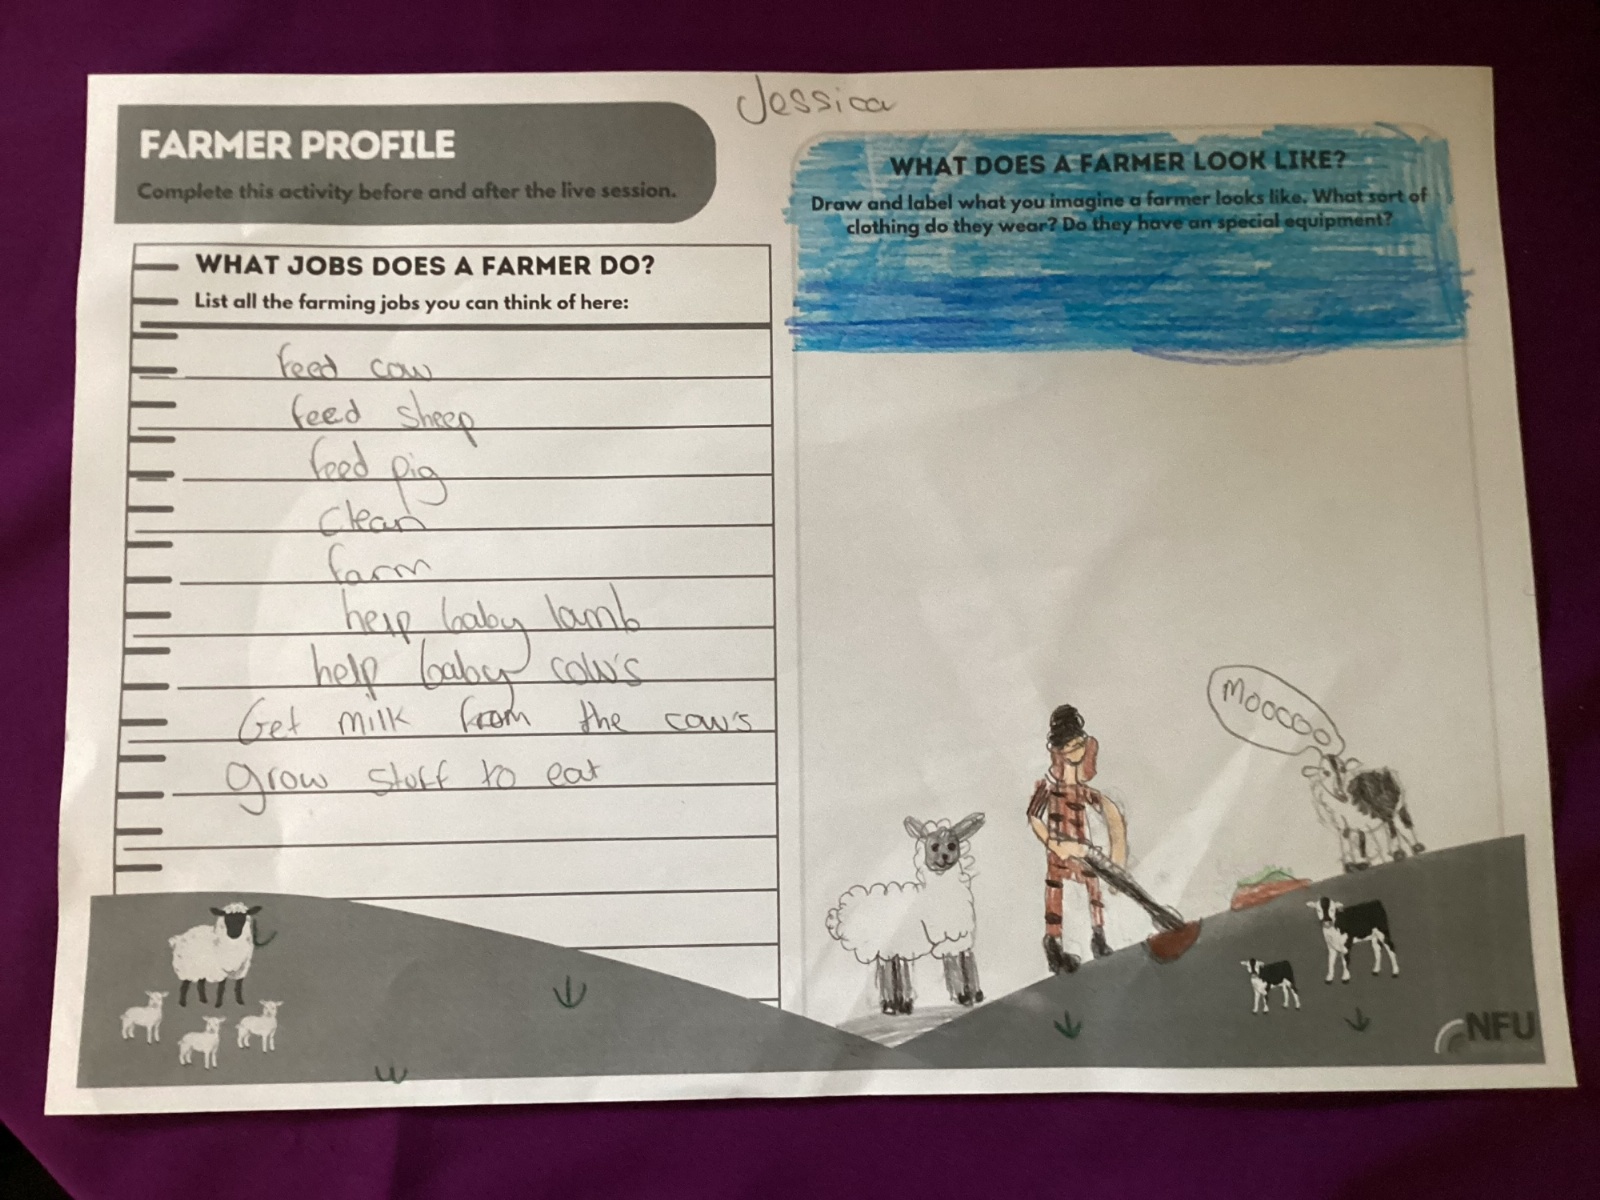 Jessica
FARMER PROFILE
Complete this activity before and after the live session.
WHAT JOBS DOES A FARMER DO?
List all the farming jobs you can think of here:
feed cow
feed sheep
feed pig
clean
farm
help baby lamb
help baby cow's
Get milk from the cow's
grow stuff to eat
WHAT DOES A FARMER LOOK LIKE?
Draw and label what you imagine a farmer looks like. What sort of
clothing do they wear? Do they have an special equipment?
Moocoo
NFU